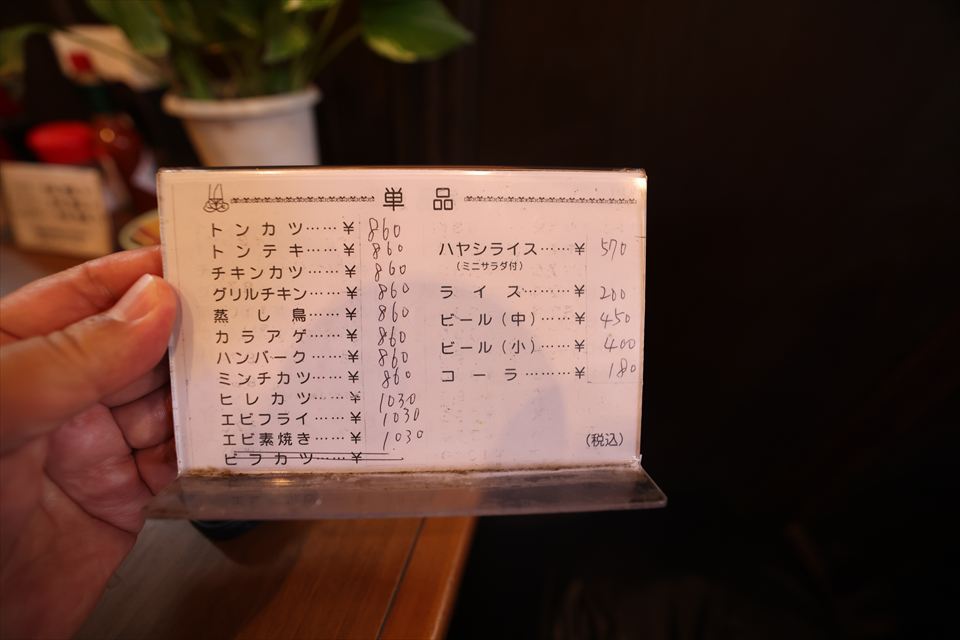 単品
トンカツ……¥ 860
トンテキ……¥ 860
チキンカツ……¥ 860
グリルチキン……¥ 860
蒸し鳥……¥ 860
カラアゲ……¥ 860
ハンバーク……¥ 860
ミンチカツ……¥ 860
ヒレカツ……¥ 1030
エビフライ……¥ 1030
エビ素焼き……¥ 1030
ヒラカツ……¥
ハヤシライス……¥ 570
(ミニサラダ付)
ライス………¥ 200
ビール(中)……¥ 450
ビール(小)……¥ 400
コーラ………¥ 180
(税込)